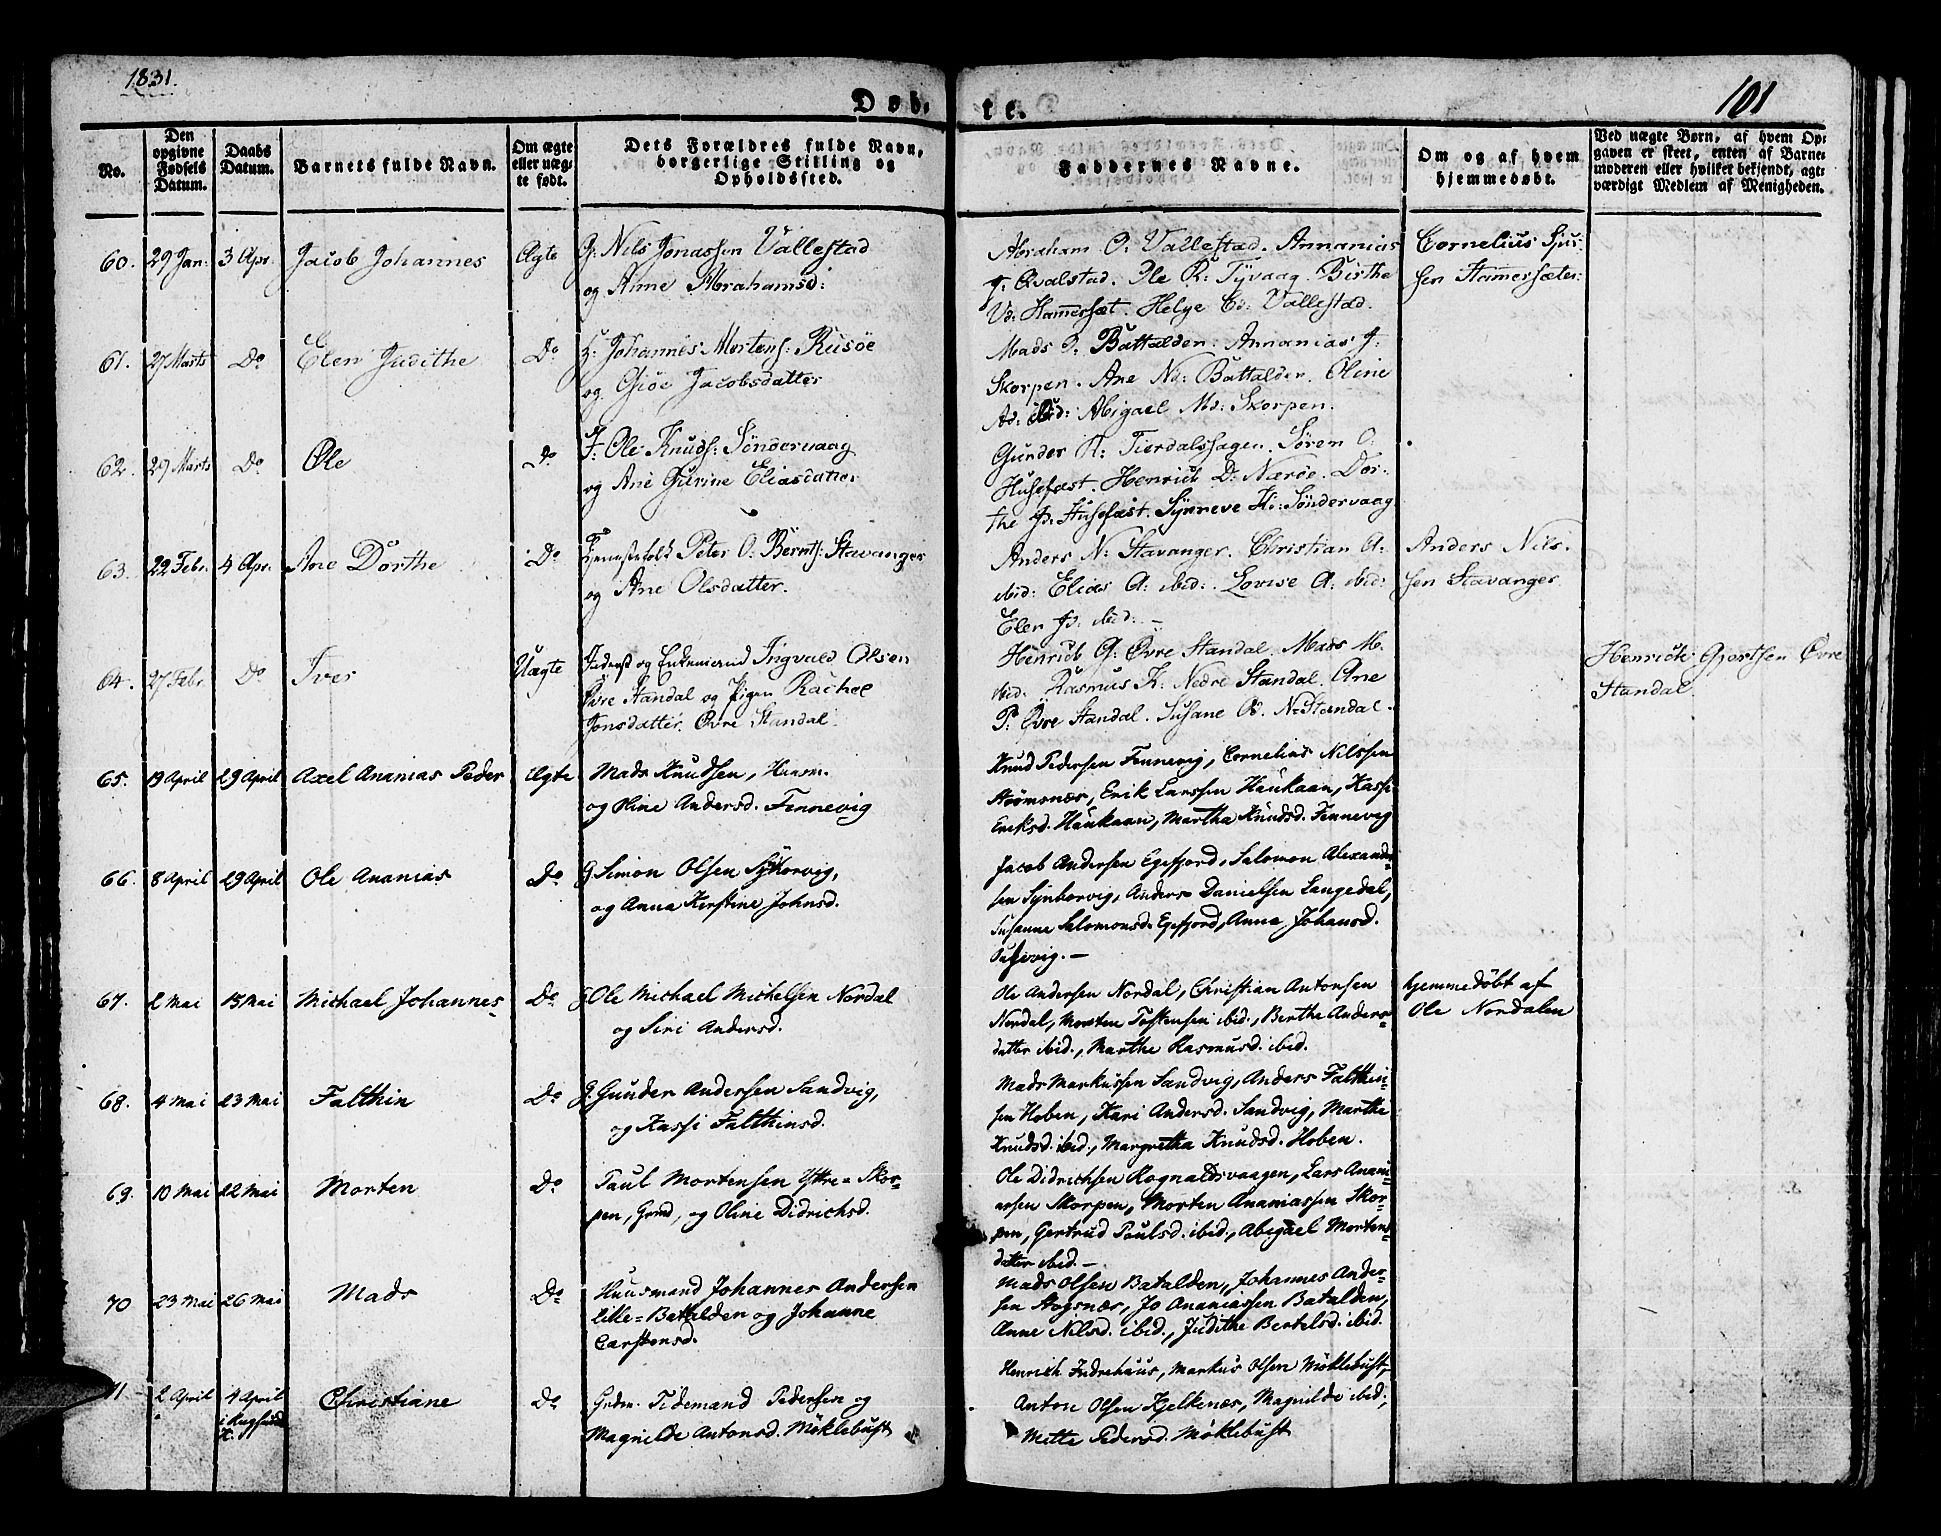 1831.
101
Døb- te.
No.
Den opgivne Fødsels Datum.
Daabs Datum.
Barnets fulde Navn.
Om ægte eller uægte født.
Dets Forældres fulde Navn, borgerlige Stilling og Opholdssted.
Faddernes Navne.
Om og af hvem hjemmedøbt.
Ved uægte Børn, af hvem Opgaven er skeet, enten af Barnemoderen eller hvilket bekjendt, agtværdigt Medlem af Menigheden.
60. 29 Jan: 3 Apr. Jacob Johannes Ægte
G: Nils Jonassen Vallestad
og Anne Abrahamsd:
Abraham O: Vallestad. Annanias
J: Qvalstad. Ole R: Tyvaag. Birthe
Vd: Hammerset. Helge Cd: Vallestad.
Cornelius Sjur-
sen Hamersæter:
61. 27 Marts Do Elen Judithe Do
H: Johannes Mortens: Rusöe
og Giöe Jacobsdatter
Mads O: Battalden: Annanias J:
Skorpen. Ane Nd: Battalden. Oline
Ad: ibid: Abigael Md: Skorpen.
62. 29 Marts Do Ole Do
F: Ole Knuds: Söndervaag
og Ane Gurine Eliasdatter
Gunder K: Tierdalshagen. Sören O:
Husefæst. Henrick D: Nærøe. Dor-
the Jd: Husefæst. Synneve Kd: Söndervaag
63. 22 Febr. 4 Apr. Ane Dorthe Do
Tjenestefolk Peter O: Bernts: Stavanger
og Ane Olsdatter.
Anders N: Stavanger. Christian A:
ibid: Elias A: ibid: Lovise A: ibid:
Elen Jd: ibid: —
Anders Nils-
sen Stavanger
64. 27 Febr. Do Iver Uægte
og Enkemand Ingvald Olsen
Øvre Standal og Pigen Rachel
Jonsdatter Øvre Standal
Henrick G: Øvre Standal. Mads M.
ibid. Rasmus K: Nedre Standal. Ane
P: Øvre Standal. Susane O. N: Standal.
Henrick Gjertsen Øvre
Standal.
65. 19 April 29 April Axel Ananias Peder Ægte
Mads Knudsen, Huusm.
og Oline Andersd. Fennevig
Knud Pedersen Fennevig, Cornelius Nilssen
Strömsnæs, Erik Larssen Haukaan, Kassi
Eriksd. Haukaan, Martha Knudsd. Fennevig
66. 8 April 29 April Ole Ananias Do
G Simon Olsen Synborvig,
og Anna Kirstine Johnsd.
Jacob Andersen Egefjord, Salomon Alexand-
sen Synborvig, Anders Danielsen Langedal,
Susanne Salomonsd. Egefjord, Anna Johansd.
67. 2 Mai 15 Mai Michael Johannes- Do
G Ole Michael Michelsen Nordal
og Siri Andersd.
Ole Andersen Nordal, Christian Antonsen
Nordal, Morten Tostensen ibid., Berthe Anders-
datter ibid., Marthe Rasmusd. ibid.
hjemmedøbt af
Ole Nordalen
68. 4 Mai 23 Mai Falthin Do
G Gunder Andersen Sandvig,
og Kassi Falthinsd.
Mads Markussen Sandvig, Anders Falthin-
sen Hoben, Kari Andersd. Sandvig, Marthe
Knudsd. ibid., Margretha Knudsd. Hoben.
69. 10 Mai 22 Mai Morten Do
Paul Mortensen Yttre-Skor-
pen, Grmd, og Oline Didrichsd.
Ole Didrichsen Rognaldsvaagen, Lars Anani-
assen Skorpen, Morten Ananiassen Skor-
pen, Gertrud Paulsd. ibid., Abigael Mortens-
datter ibid. —
70 23 Mai 26 Mai Mads Do
Huusmand Johannes Andersen
Lille-Battalden og Johanne
Carstensd.
Mads Olsen Batalden, Johannes Ander-
sen Hogsnær, Jo Ananiassen Batalden,
Anne Nilsd. ibid., Judithe Bertelsd. ibid.
71 2 April 4 April Christiane Do
i Rugsund
K.
Grdm. Tidemand Pedersen og
Magnilde Antonsd. Möklebust
Henrich Indrehuus, Markus Olsen Möklebust,
Anton Olsen Kjelkenæs, Magnilde ibid.,
Mette Pedersd. Möklebust